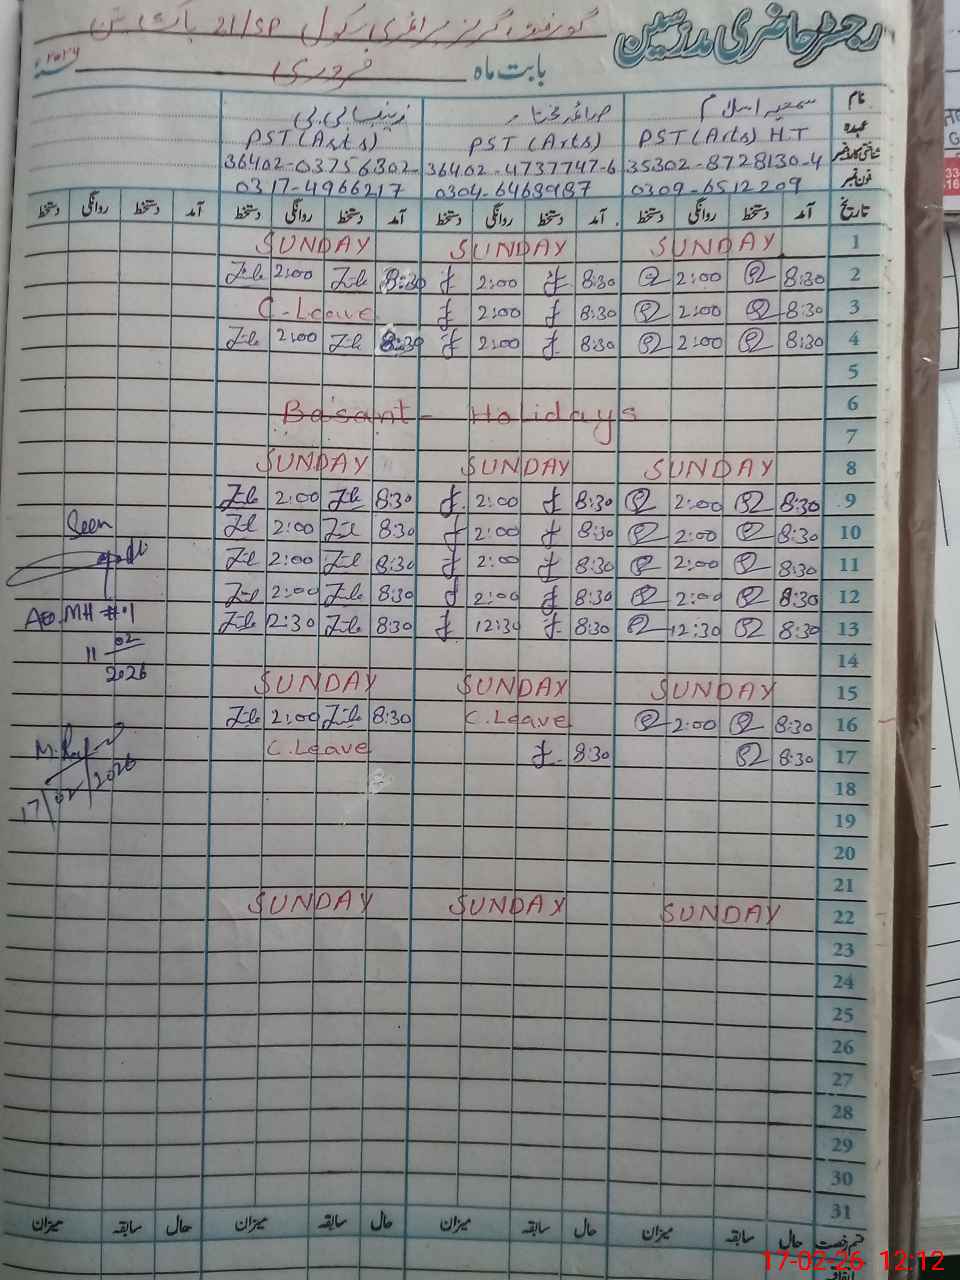 رجسٹر حاضری مدرسین
گورنمنٹ گرلز پرائمری سکول 21/SP پاک پتن
بابت ماہ فروری ۲۰۲۶
نام سمعیہ اسلام صائمہ مختار زینب بی بی
عہدہ PST (Arts) H.T PST (Arts) PST (Arts)
شناختی کارڈ نمبر 35302-8728130-4 36402-4737747-6 36402-03756302-
فون نمبر 0309-6512209 0304-6468987 0317-4966217
تاریخ آمد دستخط روانگی دستخط آمد دستخط روانگی دستخط آمد دستخط روانگی دستخط آمد دستخط روانگی دستخط
1 SUNDAY SUNDAY SUNDAY
2 8:30 2:00 8:30 2:00 8:30 2:00
3 8:30 2:00 8:30 2:00 C-Leave
4 8:30 2:00 8:30 2:00 8:30 2:00
5
6 Basant - Holidays
7
8 SUNDAY SUNDAY SUNDAY
9 8:30 2:00 8:30 2:00 8:30 2:00
10 8:30 2:00 8:30 2:00 8:30 2:00
11 8:30 2:00 8:30 2:00 8:30 2:00
12 8:30 2:00 8:30 2:00 8:30 2:00
13 8:30 12:30 8:30 12:30 8:30 12:30
14
15 SUNDAY SUNDAY SUNDAY
16 8:30 2:00 C.Leave 8:30 2:00
17 8:30 8:30 C.Leave
18
19
20
21
22 SUNDAY SUNDAY SUNDAY
23
24
25
26
27
28
29
30
31
Seen
AEO MH #1
11/02/2026
17/02/2026
قسم رخصت حال سابقہ میزان حال سابقہ میزان حال سابقہ میزان حال سابقہ میزان
17-02-26 12:12